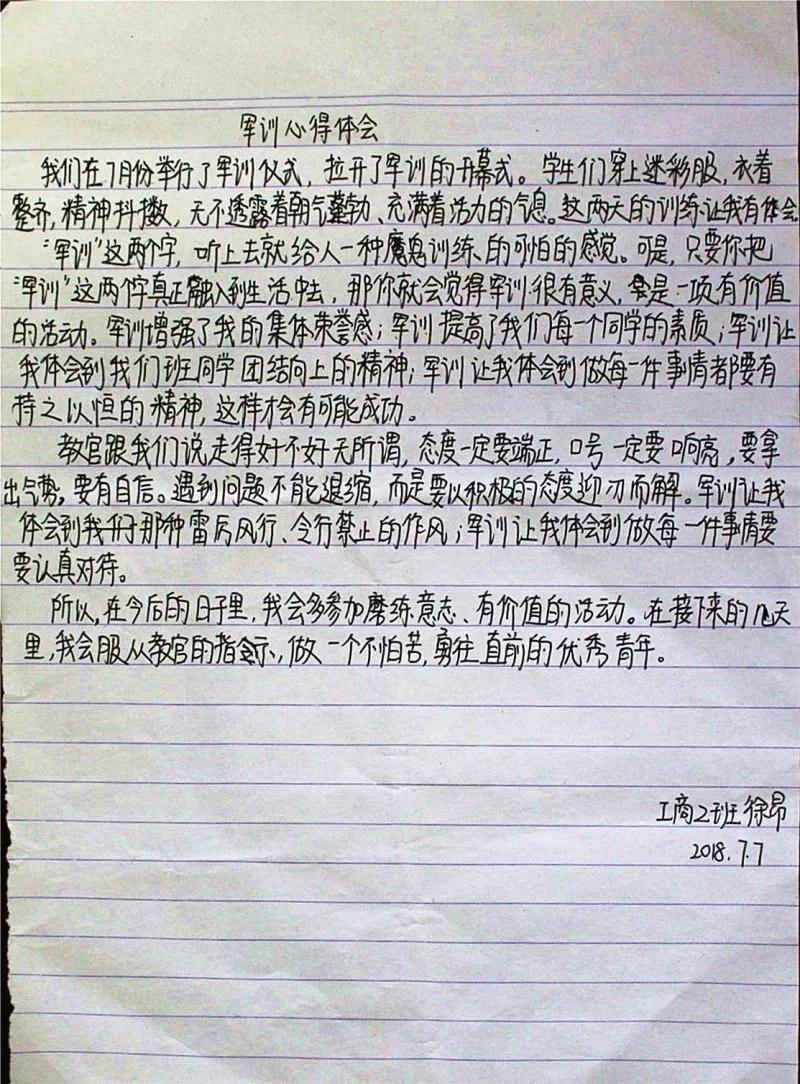 军训心得体会
我们在7月份举行了军训仪式，拉开了军训的开幕式。学生们穿上迷彩服，衣着
整齐，精神抖擞，无不透露着朝气蓬勃、充满着活力的气息。这两天的训练让我有体会。
“军训”这两个字，听上去就给人一种魔鬼训练、的可怕的感觉。可是，只要你把
“军训”这两个字真正融入到生活中去，那你就会觉得军训很有意义，是一项有价值
的活动。军训增强了我的集体荣誉感；军训提高了我们每一个同学的素质；军训让
我体会到我们班同学团结向上的精神；军训让我体会到做每一件事情都要有
持之以恒的精神，这样才会有可能成功。
教官跟我们说走得好不好无所谓，态度一定要端正，口号一定要响亮，要拿
出气势，要有自信。遇到问题不能退缩，而是要以积极的态度迎刃而解。军训让我
体会到我们那种雷厉风行、令行禁止的作风；军训让我体会到做每一件事情要
要认真对待。
所以，在今后的日子里，我会多参加磨练意志、有价值的活动。在接下来的几天
里，我会服从教官的指示，做一个不怕苦，勇往直前的优秀青年。
工商2班徐昂
2018.7.7